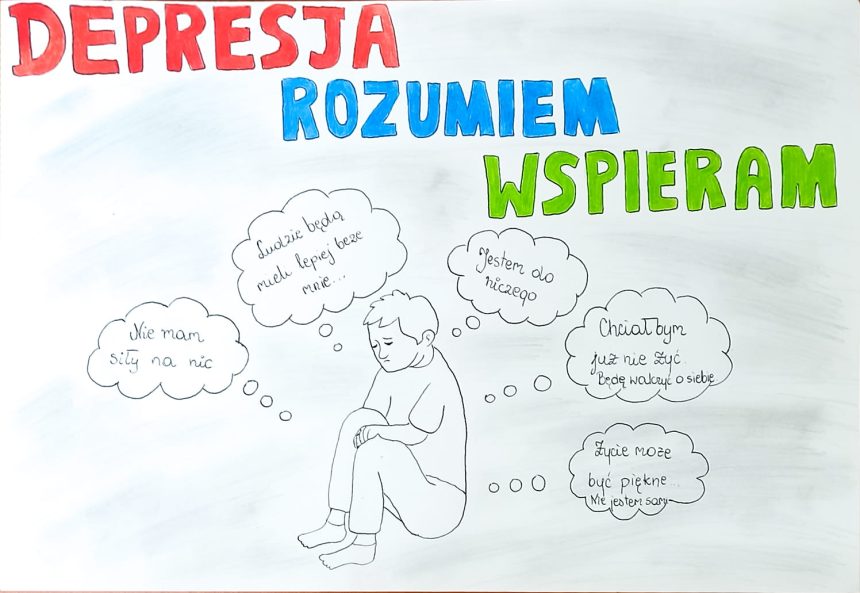 DEPRESJA
ROZUMIEM
WSPIERAM
Ludzie będą
mieli lepiej beze
mnie...
Jestem do
niczego
Nie mam
siły na nic
Chciałbym
już nie żyć.
Będę walczyć o siebie.
Życie może
być piękne...
Nie jestem sam